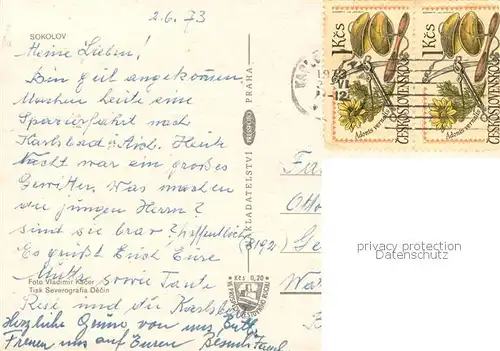 2.6.73
SOKOLOV
Meine Lieben!
Bin gut angekommen,
Machen heute eine
Spazierfahrt nach
Karlsbad. Heute
Nacht war ein großes
Gewitter. Was machen
die jungen Herrn?
sind sie brav? hoffentlich
Es grüßt Euch Eure
Mutti sowie Tante
Resi und die Karlsb
Herzliche Grüße von uns
Freuen uns auf Euren Besuch
Foto Vladimír Kácer
Tisk Severografia Děčín
NAKLADATELSTVÍ
PRAHA
Kčs 0,20
1 Kčs
Adonis vernalis
ČESKOSLOVENSKO
1 Kčs
Adonis vernalis
ČESKOSLOVENSKO
KARLO
1973
VI
-12
Fa
Otto
(8192)
Ge
privacy protection
Datenschutz